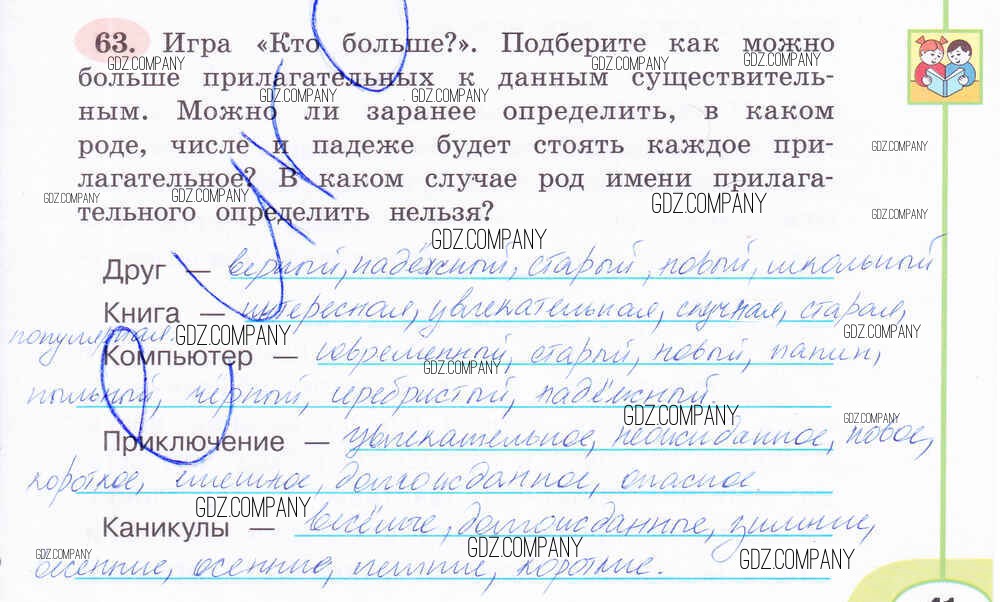 63. Игра «Кто больше?». Подберите как можно
GDZ.COMPANY GDZ.COMPANY GDZ.COMPANY
больше прилагательных к данным существитель-
GDZ.COMPANY GDZ.COMPANY
ным. Можно ли заранее определить, в каком
роде, числе и падеже будет стоять каждое при-
GDZ.COMPANY
лагательное? В каком случае род имени прилага-
GDZ.COMPANY GDZ.COMPANY GDZ.COMPANY
тельного определить нельзя?
GDZ.COMPANY
GDZ.COMPANY
Друг — верный, надёжный, старый, новый, школьный
Книга — интересная, увлекательная, скучная, старая,
популярная.
GDZ.COMPANY GDZ.COMPANY
Компьютер — современный, старый, новый, папин,
GDZ.COMPANY
пыльный, чёрный, серебристый, надёжный.
GDZ.COMPANY GDZ.COMPANY
Приключение — увлекательное, неожиданное, новое,
короткое, смешное, долгожданное, опасное.
GDZ.COMPANY
Каникулы — весёлые, долгожданные, зимние,
GDZ.COMPANY GDZ.COMPANY GDZ.COMPANY
осенние, летние, короткие.